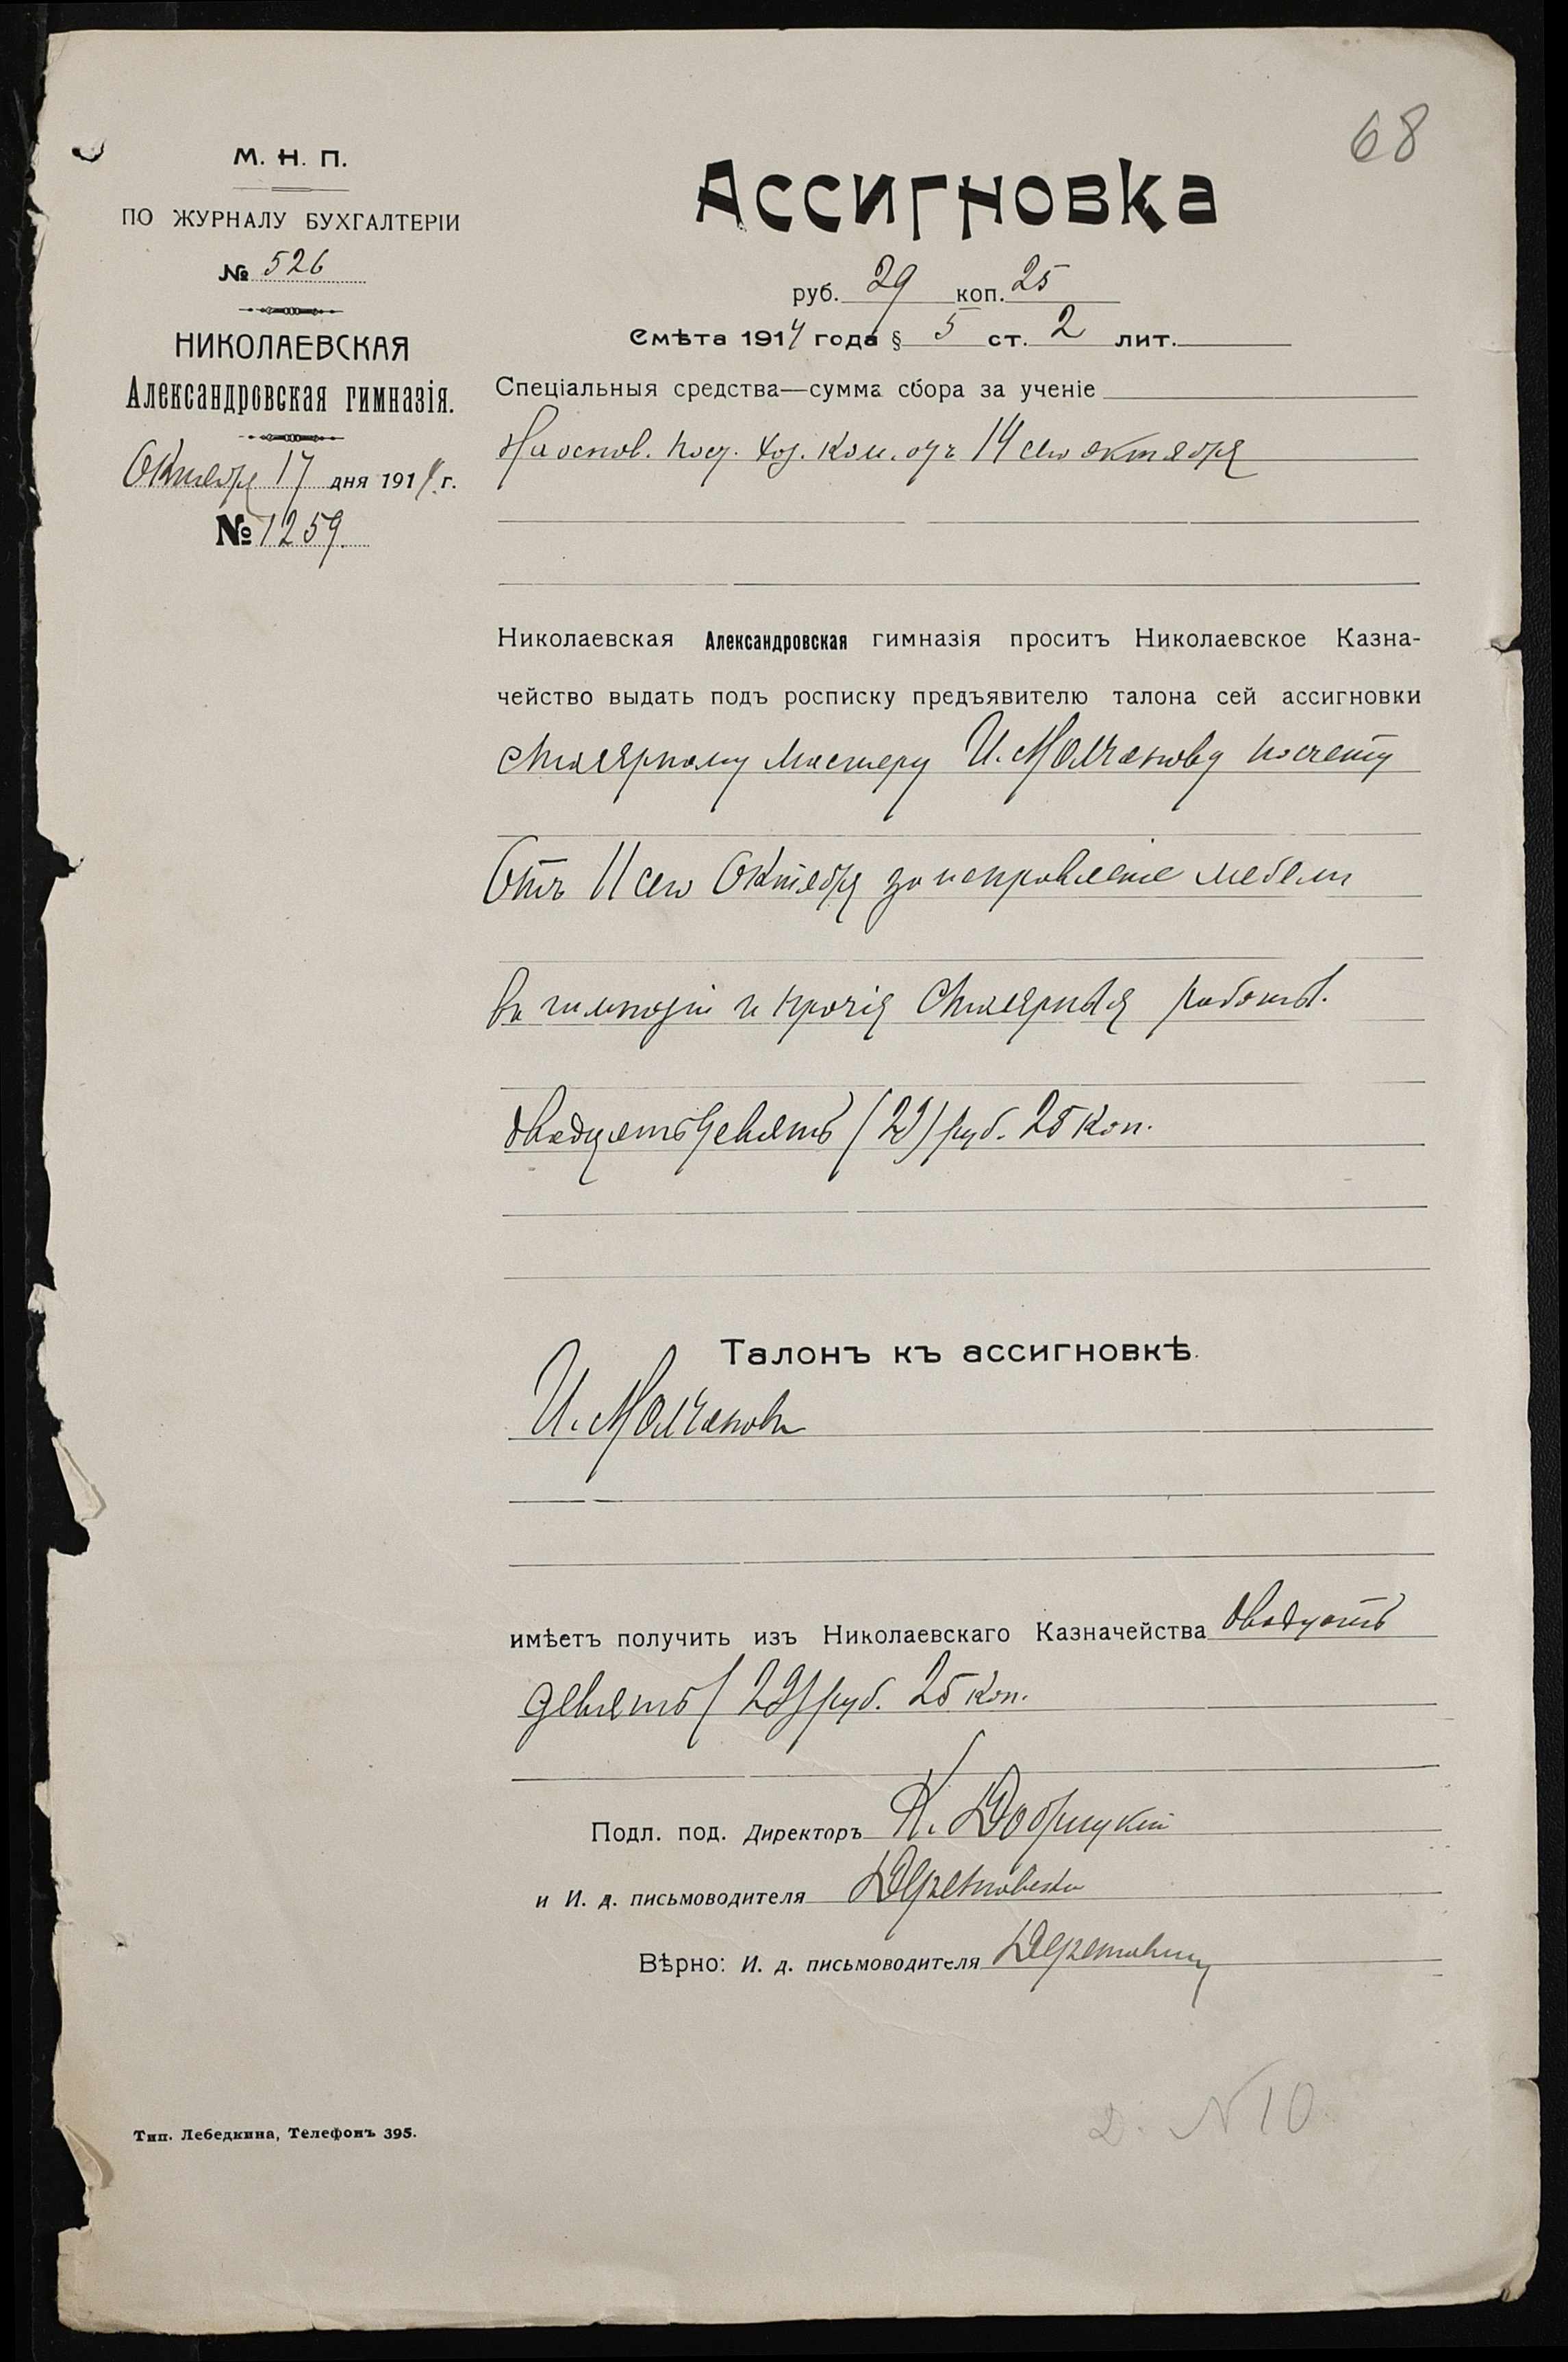 68
М. Н. П.
ПО ЖУРНАЛУ БУХГАЛТЕРІИ
№ 526
НИКОЛАЕВСКАЯ
Александровская гимназія.
Октября 17 дня 1914 г.
№ 1259.
Ассигновка
руб. 29 коп. 25
Смѣта 1914 года § 5 ст. 2 лит.
Спеціальныя средства—сумма сбора за ученіе
На основ. пост. Хоз. Ком. отъ 14 сего октября
Николаевская Александровская гимназія проситъ Николаевское Казна-
чейство выдать подъ росписку предъявителю талона сей ассигновки
столярному мастеру И. Молчанову по счету
отъ 11 сего Октября за исправленіе мебели
въ гимназіи и прочія столярныя работы.
двадцать девять (29) руб. 25 коп.
Талонъ къ ассигновкѣ.
И. Молчановъ
имѣетъ получить изъ Николаевскаго Казначейства двадцать
девять (29) руб. 25 коп.
Подл. под. Директоръ К.
и И. д. письмоводителя
Вѣрно: И. д. письмоводителя
Тип. Лебедкина, Телефонъ 395.
Д. N 10